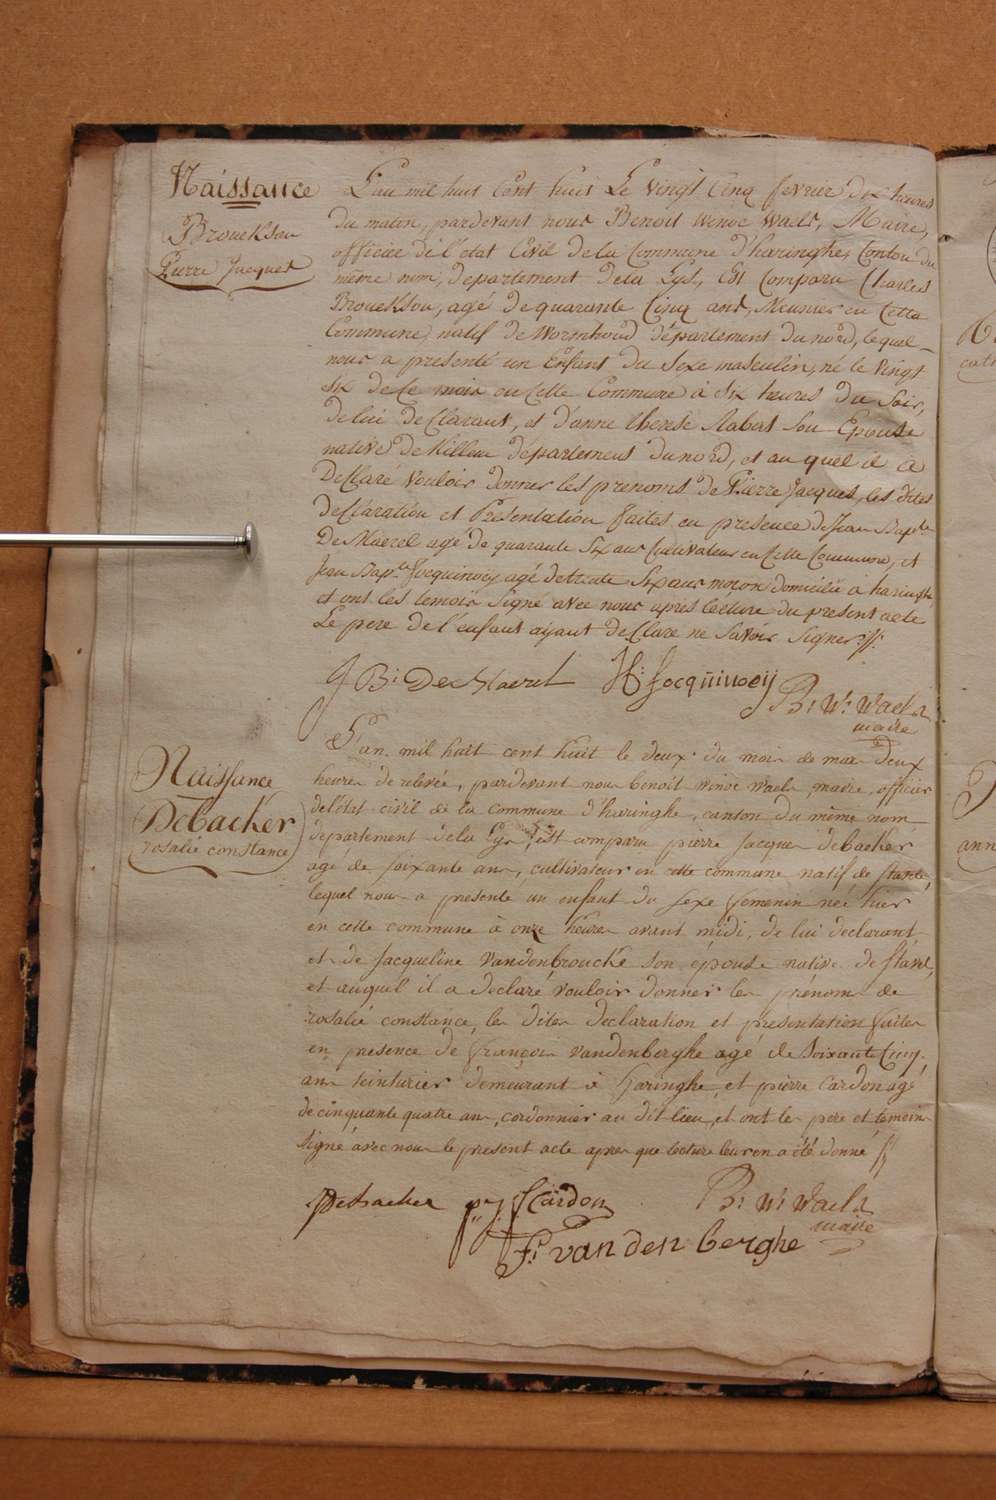 Naissance
Broucksou
Pierre Jacques
L'an mil huit Cent huit Le vingt Cinq fevrier dix heures
du matin, pardevant nous Benoit winoc Waels, Maire,
officier de l'état Civil de la Commune d'haringhe, Conton du
même nom, departement dela Lys, Est Comparu Charles
Broucksou, agé de quarante Cinq ans, Meunier en Cette
Commune, natif de Wormhoud département du nord, lequel
nous a presenté un Enfant du Sexe masculin, né le vingt
de Ce mois en Cette Commune à Six heures du Soir,
de lui deClarant, et d'anne therese Rabat Son Epouse
native de Killem département du nord, et au quel il a
DeClaré Vouloir donner les prenoms de Pierre Jacques, les dites
deClaration et Présentation faites en presence de Jean Bapte
De Maerel agé de quarante Six ans Cultivateur en Cette Commune, et
Jean Bapte Jocquinoey agé de trente Six ans domicilié à haringhe
et ont les temoins Signé avec nous après lecture du present acte
Le pere de l'enfant aijant deClaré ne Savoir Signer
J B: De Maerel
Jocquinoeij
B: W: Waels
maire
Naissance
Debacker
rosalie constance
L'an mil huit cent huit le deux du mois de mars deux
heures de relevée, pardevant nous benoit winoc waels, maire, officier
de l'état civil de la commune d'haringhe, canton du même nom
département de la Lys, est comparu pierre Jacques debacker
agé de soixante ans, cultivateur en cette commune natif de stavele,
lequel nous a presenté un enfant du sexe femenin née hier
en cette commune à onze heures avant midi, de lui declarant
et de Jacqueline Vandenbrouche son épouse native de stavele,
et auquel il a declaré vouloir donner les prénoms de
rosalie constance, les dites declaration et presentation faites
en presence de françois vandenberghe agé de soixante Cinq
ans teinturier demeurant à haringhe, et pierre Cardon agé
de cinquante quatre ans, cordonnier au dit lieu, et ont les pere et temoins
signé avec nous le present acte apres que lecture leur en a été donné
Debacker
p: J Cardon
B: W: Waels
maire
F: van den berghe